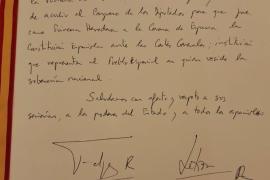 de acudir al Congreso de los Diputados para que jure
como Princesa Heredera a la Corona de España la
Constitución Española ante las Cortes Generales; institución
que representa al Pueblo Español en quien reside la
soberanía nacional
Saludamos con afecto y respeto a sus
señorías, a los poderes del Estado, y a todos los españoles
Felipe R
Letizia
R